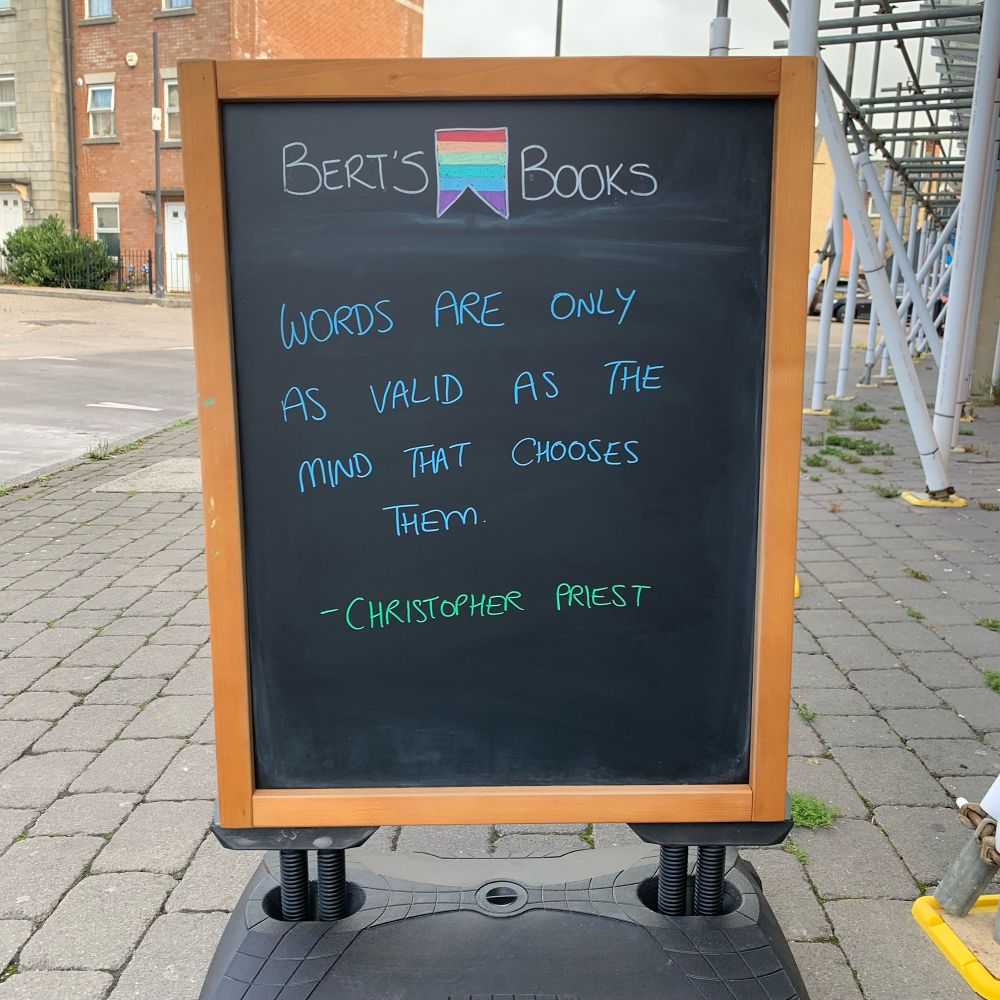 BERT'S BOOKS
WORDS ARE ONLY
AS VALID AS THE
MIND THAT CHOOSES
THEM.
-CHRISTOPHER PRIEST